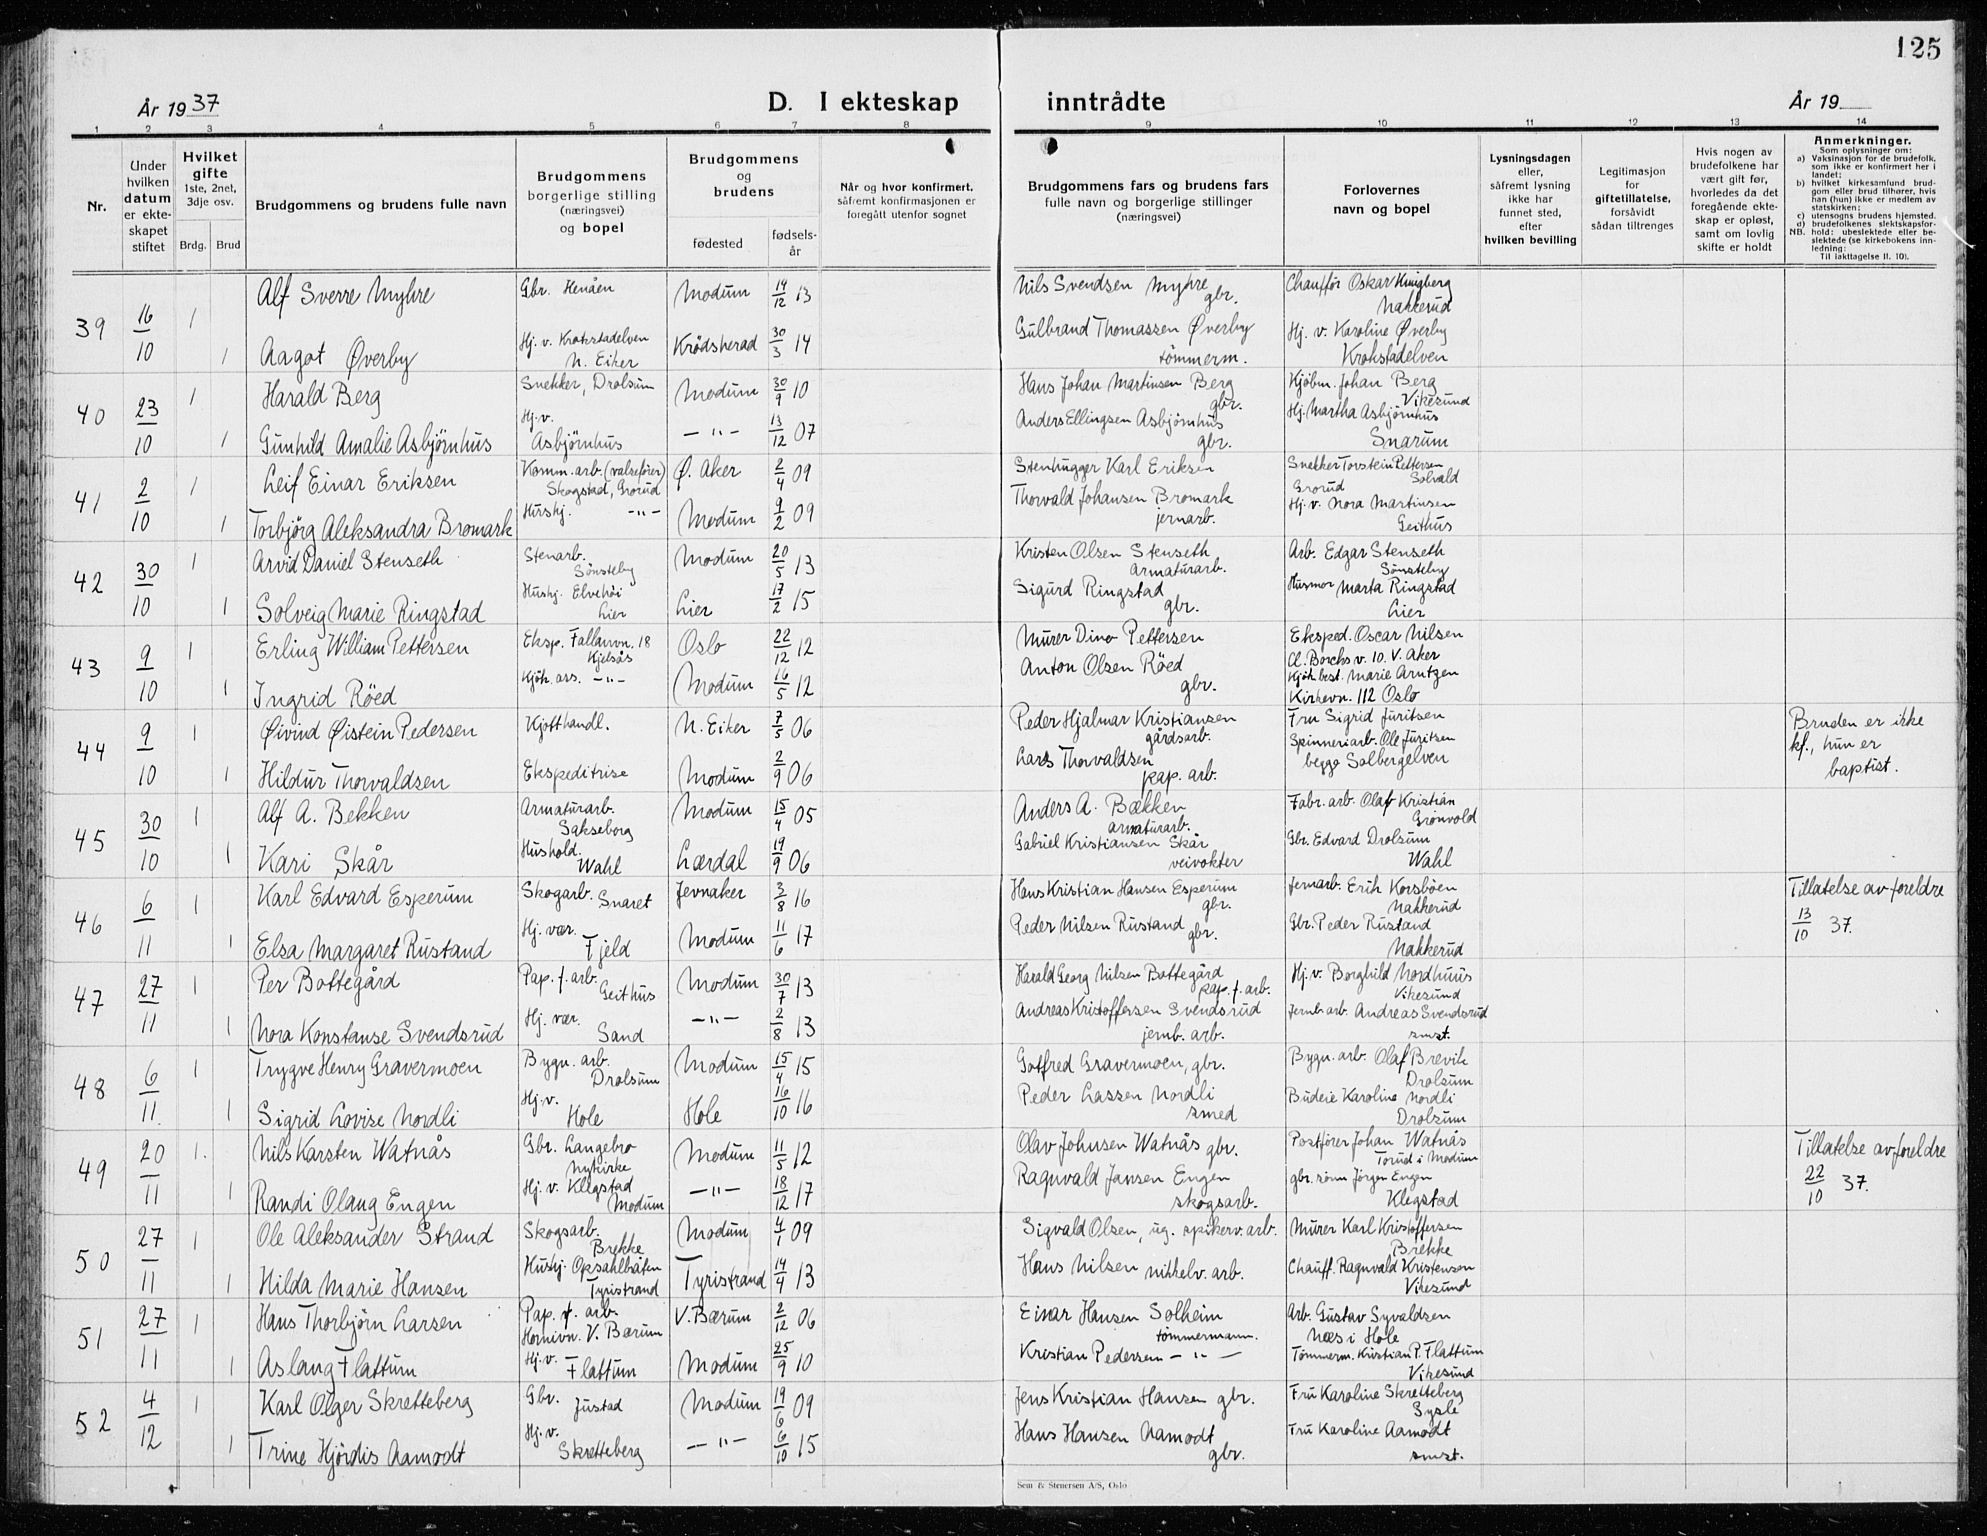 125
År 1937
D. I ekteskap inntrådte
År 19
1 2 3 4 5 6 7 8 9 10 11 12 13 14
Nr.
Under hvilken datum er ekteskapet stiftet
Hvilket gifte 1ste, 2net, 3dje osv.
Brdg. Brud
Brudgommens og brudens fulle navn
Brudgommens borgerlige stilling (næringsvei) og bopel
Brudgommens og brudens
fødested
fødselsår
Når og hvor konfirmert, såfremt konfirmasjonen er foregått utenfor sognet
Brudgommens fars og brudens fars fulle navn og borgerlige stillinger (næringsvei)
Forlovernes navn og bopel
Lysningsdagen eller, såfremt lysning ikke har funnet sted, efter hvilken bevilling
Legitimasjon for giftetillatelse, forsåvidt sådan tiltrenges
Hvis nogen av brudefolkene har vært gift før, hvorledes da det foregående ekteskap er opløst, samt om lovlig skifte er holdt
Anmerkninger.
Som oplysninger om:
a) Vaksinasjon for de brudefolk, som ikke er konfirmert her i landet;
b) hvilket kirkesamfund brudgom eller brud tilhører, hvis han (hun) ikke er medlem av statskirken;
c) utensogns brudens hjemsted.
d) brudefolkenes slektskapsforhold: ubeslektede eller beslektede (se kirkebokens innledning:
NB.
Til iakttagelse II. 10).
39 16/10 1 Alf Sverre Myhre Gbr. Henåen Modum 14/12 13 Nils Svendsen Myhre gbr. Chauffør Oskar Nakkerud
1 Aagot Øverby Hj. v. Krokstadelven N. Eiker Krødsherad 30/3 14 Gulbrand Thomassen Øverby tømmerm. Hj. v. Karoline Øverby Krokstadelven
40 23/10 1 Harald Berg Snekker, Drolsum Modum 30/9 10 Hans Johan Martinsen Berg gbr. Kjøbm. Johan Berg Vikesund
1 Gunhild Amalie Asbjørnhus Hj. v. Asbjørnhus —"— 13/12 07 Anders Ellingsen Asbjørnhus gbr. Hj. Martha Asbjørnhus Snarum
41 2/10 1 Leif Einar Eriksen Komm. arb. (valsefører) Skogstad, Grorud Ø. Aker 2/4 09 Stenhugger Karl Eriksen Snekker Torstein Pettersen Solvald Grorud
1 Torbjørg Aleksandra Bromark Hushj. —"— Modum 9/2 09 Thorvald Johansen Bromark jernarb. Hj. v. Nora Martinsen Geithus
42 30/10 1 Arvid Daniel Stenseth Stenarb. Sønsteby Modum 20/5 13 Kristen Olsen Stenseth armaturarb. Arb. Edgar Stenseth Sønsteby
1 Solveig Marie Ringstad Hushj. Elvehöi Lier Lier 17/2 15 Sigurd Ringstad gbr. Husmor Marta Ringstad Lier
43 9/10 1 Erling William Pettersen Eksp. Fallanvn. 18 Kjelsås Oslo 22/12 12 Murer Dino Pettersen Eksped. Oscar Nilsen Cl. Borchs v. 10. V. Aker
1 Ingrid Röed Kjøk. ass. —"— Modum 16/5 12 Anton Olsen Röed gbr. Kjøk. best. Marie Arntzen Kirkevn. 112 Oslo
44 9/10 1 Øivind Øistein Pedersen Kjøtthandl. N. Eiker 7/5 06 Peder Hjalmar Kristiansen gårdsarb. Fru Sigrid Juritsen Bruden er ikke kf., hun er baptist.
1 Hildur Thorvaldsen Ekspeditrise Modum 2/9 06 Lars Thorvaldsen pap. arb. Spinneriarb. Ole Juritsen begge Solbergelven
45 30/10 1 Alf A. Bekken Armaturarb. Sakseborg Modum 15/4 05 Anders A. Bækken armaturarb. Fabr. arb. Olaf Kristian Grønvold
1 Kari Skår Hushold. Wahl Lærdal 19/9 06 Gabriel Kristiansen Skår veivokter Gbr. Edvard Drolsum Wahl
46 6/11 1 Karl Edvard Esperum Skogarb. Snaret Jevnaker 3/8 16 Hans Kristian Hansen Esperum gbr. Jernarb. Erik Korsböen Nakkerud Tillatelse av foreldre 13/10 37.
1 Elsa Margaret Rustand Hj. vær. Fjeld Modum 11/6 17 Peder Nilsen Rustand gbr. Gbr. Peder Rustand Nakkerud
47 27/11 1 Per Bottegård Pap. f. arb. Geithus Modum 30/7 13 Harald Georg Nilsen Bottegård pap. f. arb. Hj. v. Borghild Nordhuus Vikesund
1 Nora Konstanse Svendsrud Hj. vær. Sand —"— 2/8 13 Andreas Kristoffersen Svendsrud jernb. arb. Jernb arb. Andreas Svendsrud smst.
48 6/11. 1 Trygve Henry Gravermoen Bygn. arb. Drolsum Modum 15/4 15 Gotfred Gravermoen, gbr. Bygn. arb. Olaf Brevik Drolsum
1 Sigrid Lovise Nordli Hj. v. Hole Hole 16/10 16 Peder Lassen Nordli smed Budeie Karoline Nordli Drolsum
49 20/11 1. Nils Karsten Watnås Gbr. Langebro Nykirke Modum 11/5 12 Olav Johnsen Watnås gbr. Postfører Johan Watnås Torud i Modum Tillatelse av foreldre 22/10 37.
1 Randi Olaug Engen Hj. v. Klegstad Modum —"— 18/12 17 Ragnvald Jansen Engen skogsarb. gbr. sønn Jørgen Engen Klegstad
50 27/11 1 Ole Aleksander Strand Skogsarb. Brekke Modum 4/1 09 Sigvald Olsen, ug. spikerv. arb. Murer Karl Kristoffersen Brekke
1 Hilda Marie Hansen Hushj. Opsahlbråten Tyristrand Tyristrand 14/4 13 Hans Nilsen nikkelv. arb. Chauff. Ragnvald Kristensen Vikesund
51 27/11 1 Hans Thorbjørn Larsen Pap. f. arb. Hornivn. V. Bærum V. Bærum 2/12 06 Einar Hansen Solheim tømmermann. Arb. Gustav Syvaldsen Næs i Hole
1 Aslaug Flattum Hj. v. Flattum Modum 25/9 10 Kristian Pedersen —"— Tømmerm. Kristian P. Flattum Vikesund
52 4/12 1 Karl Olger Skretteberg Gbr. Justad Modum 19/6 09 Jens Kristian Hansen gbr. Fru Karoline Skretteberg Sysle
1 Trine Hjördis Aamodt Hj. v. Skretteberg —"— 6/10 15 Hans Hansen Aamodt gbr. Fru Karoline Aamodt smst.
Sem & Stenersen A/S, Oslo